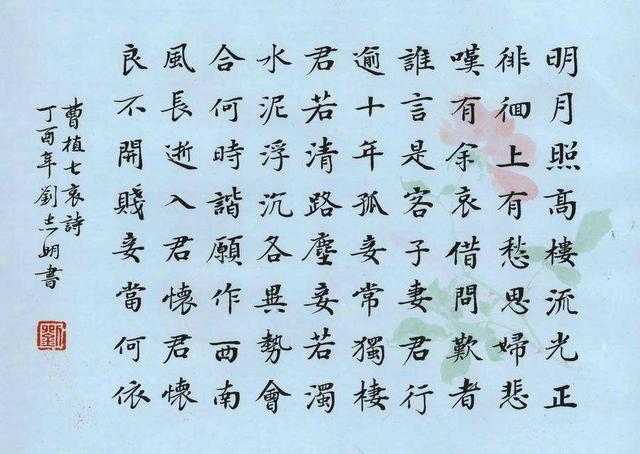 明月照高樓流光正
徘徊上有愁思婦悲
嘆有余哀借問歎者
誰言是客子妻君行
逾十年孤妾常獨棲
君若清路塵妾若濁
水泥浮沉各異勢會
合何時諧願作西南
風長逝入君懷君懷
良不開賤妾當何依
曹植七哀詩
丁酉年劉志明書
劉